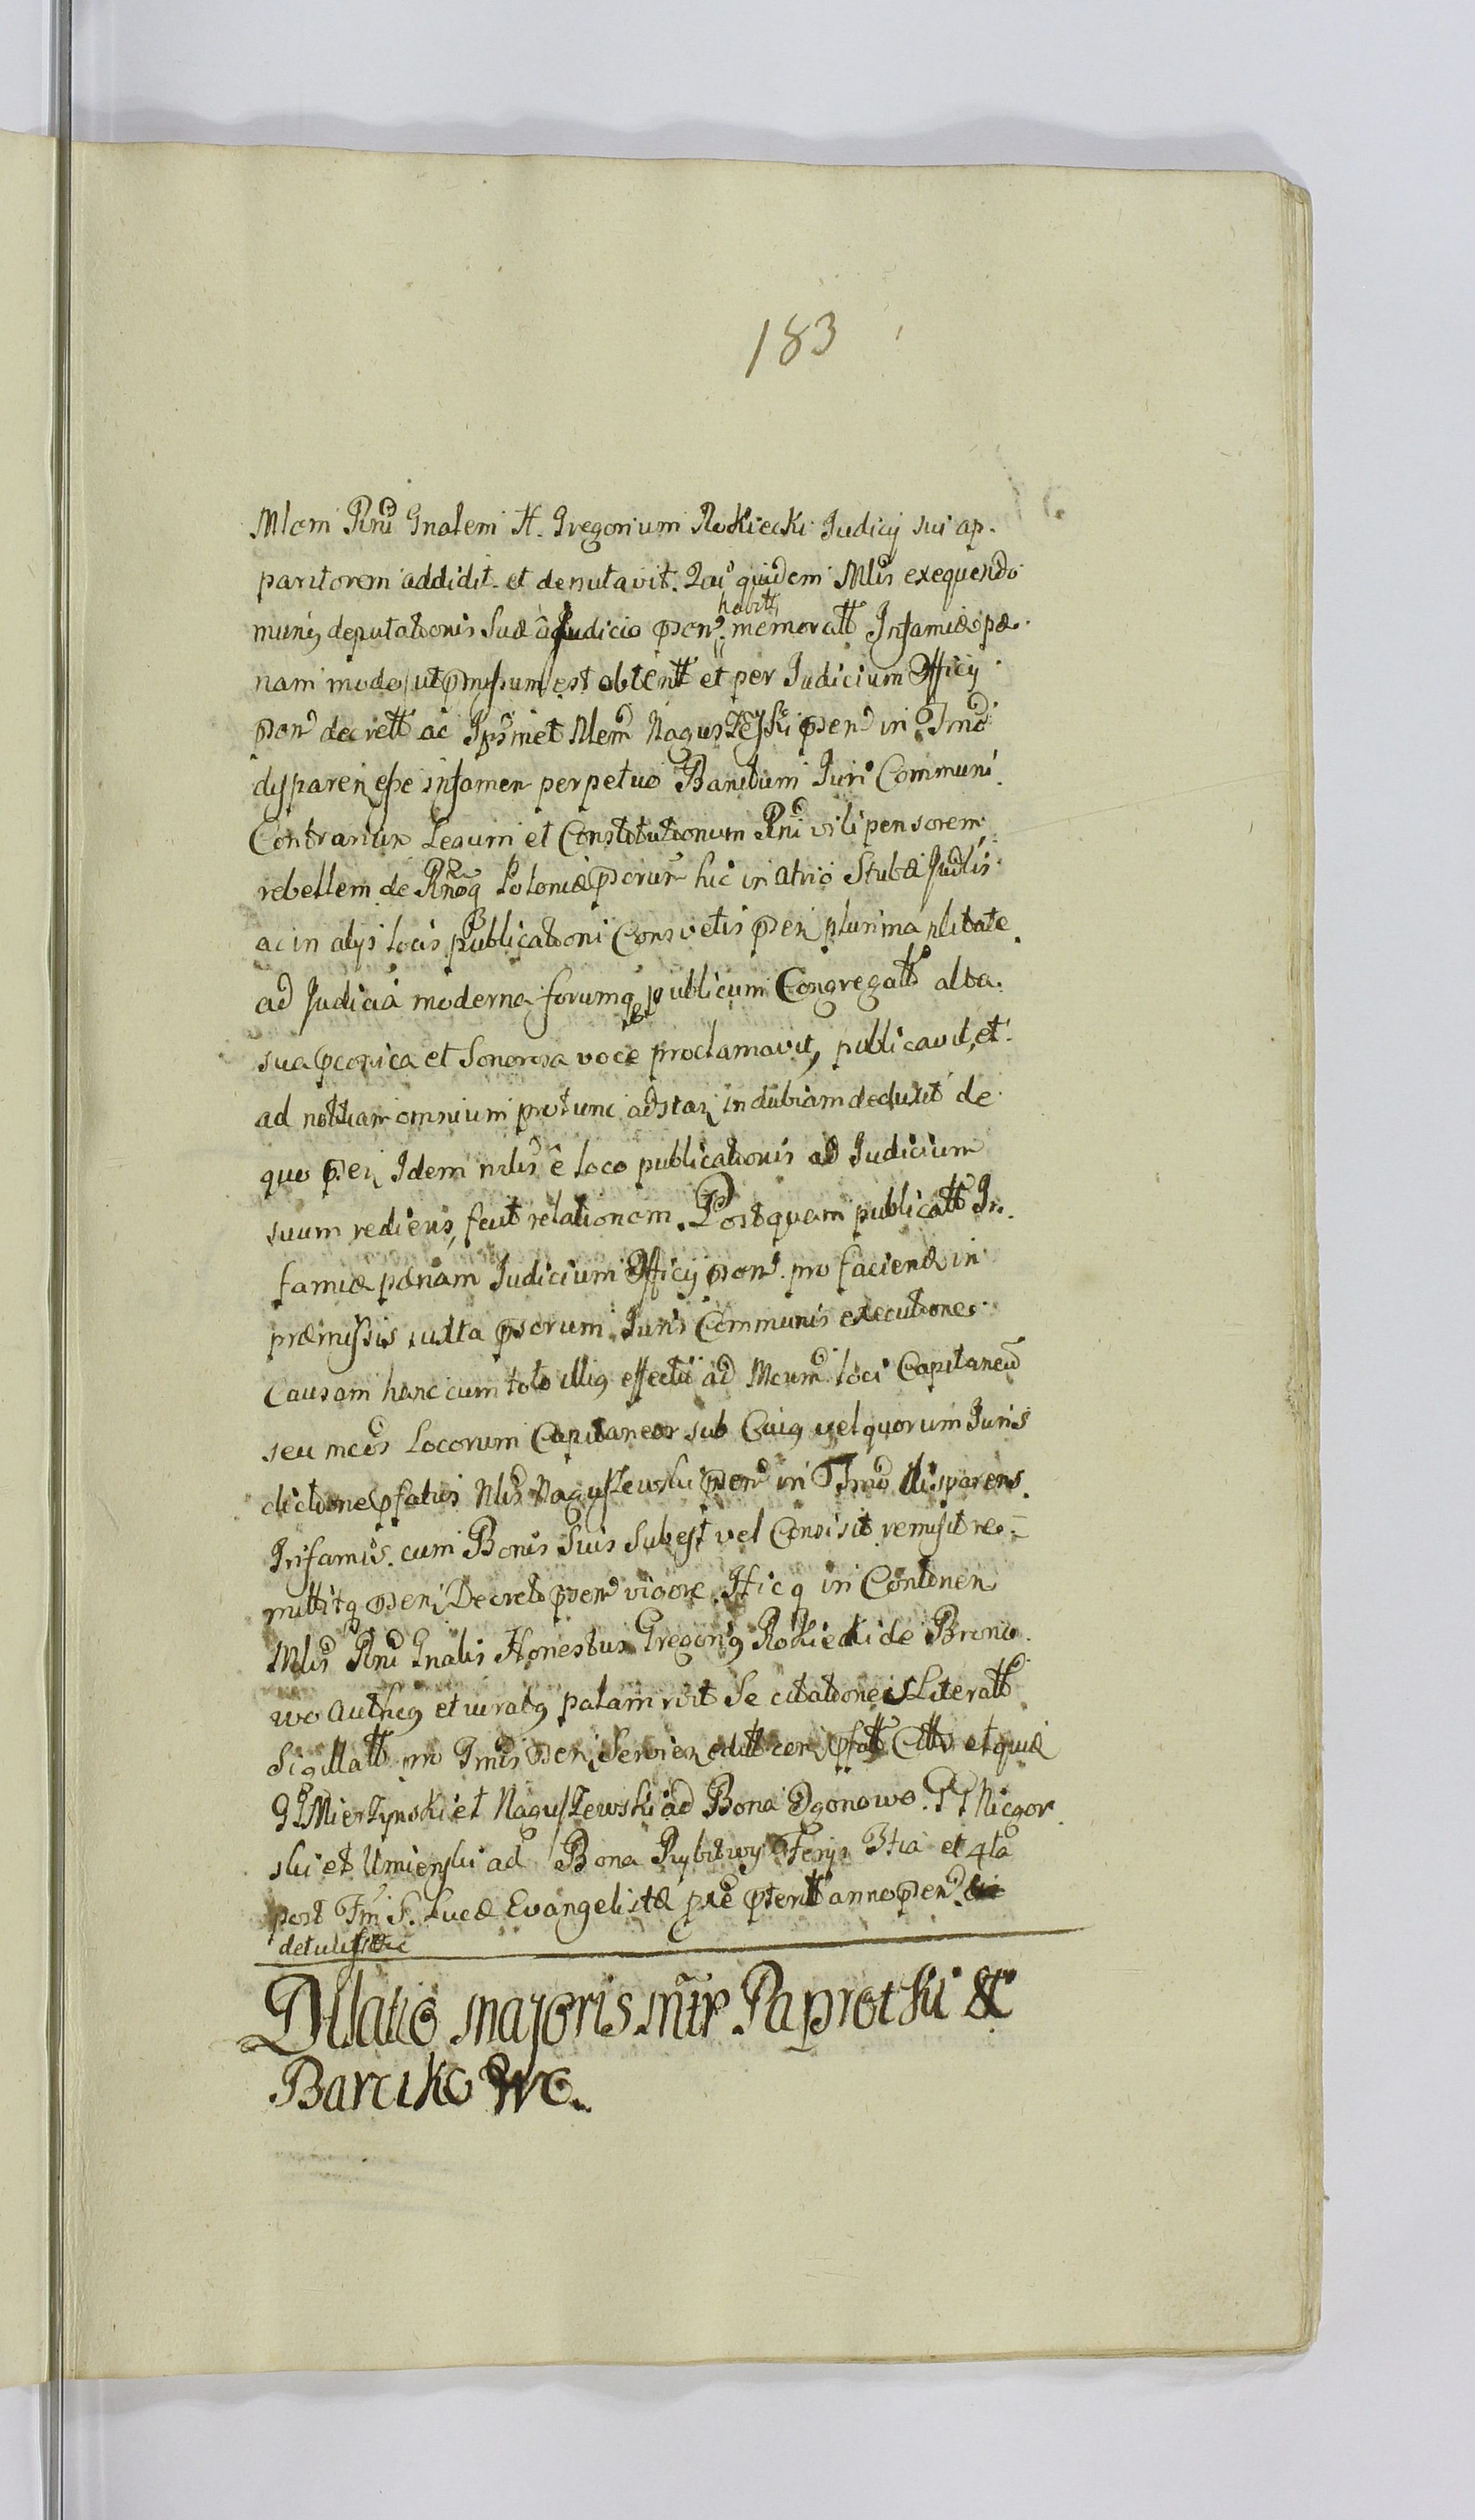 183
Mlem Rni Gnalem H. Gregorium Rokiecki Judicij sui ap-
paritorem addidit et deputavit. Qui quidem Mlis exequendo
munus deputationis suæ à Judicio psen. habitt memoratt Infamiæ pæ-
nam modo ut pmissum est obtentt et per Judicium Officij
psen decrett ac Ipsmet Mlem Naguszeski psen in Tmo
disparen esse infamen perpetuo Banitum Juri Communi
Contrarium Legum et Constitutionum Rni vilipensorem
rebellem de Rnoq Poloniæ psorum hic in atrio Stubæ Judlis
ac in alijs locis publicationi Consvetis psen plurima nlitate
ad Judicia moderna forumq publicum Congregatt alta
sua pconica et Sonorosa voce proclamavit, publicavit, et
ad notitiam omnium protunc adstan indubiam deduxit de
quo psen Idem mlis è loco publicationis ad Judicium
suum rediens, fecit relationem. Postquam publicatt In-
famiæ pænam Judicium Officij psen. pro faciend in
præmissis iuxta psorum Juris Communis executione
Causam hanc cum toto illius effectu ad Mcum loci Capitaneu
seu mcos Locorum Capitaneos sub Cuius vel quorum Juris
dictione pfatus Mls Naguszewski psen in Tmo disparens
Infamis cum Bonis Suis Subest vel Consistit remisit re-
mittitq psen Decreto psen vigore. Hicq in Continen
Mlis Rni Gnalis Honestus Gregorius Rokiecki de Brono
wo Authcus et iuratus palam rcit Se citationes Literatt
Sigillatt pro Tmis psen Servien editt cern pfatt Cttr et quid
GG Mierzynski et Naguszewski ad Bona Ogonowo PP Nicgor
ski et Umienski ad Bona Rybitwy Ferijs 3tia et 4ta
post Fm S. Lucæ Evangelistæ pxe pteritt anno psen
detulisse
Dilatio majoris mtr Paprotski &
Barcikowo.